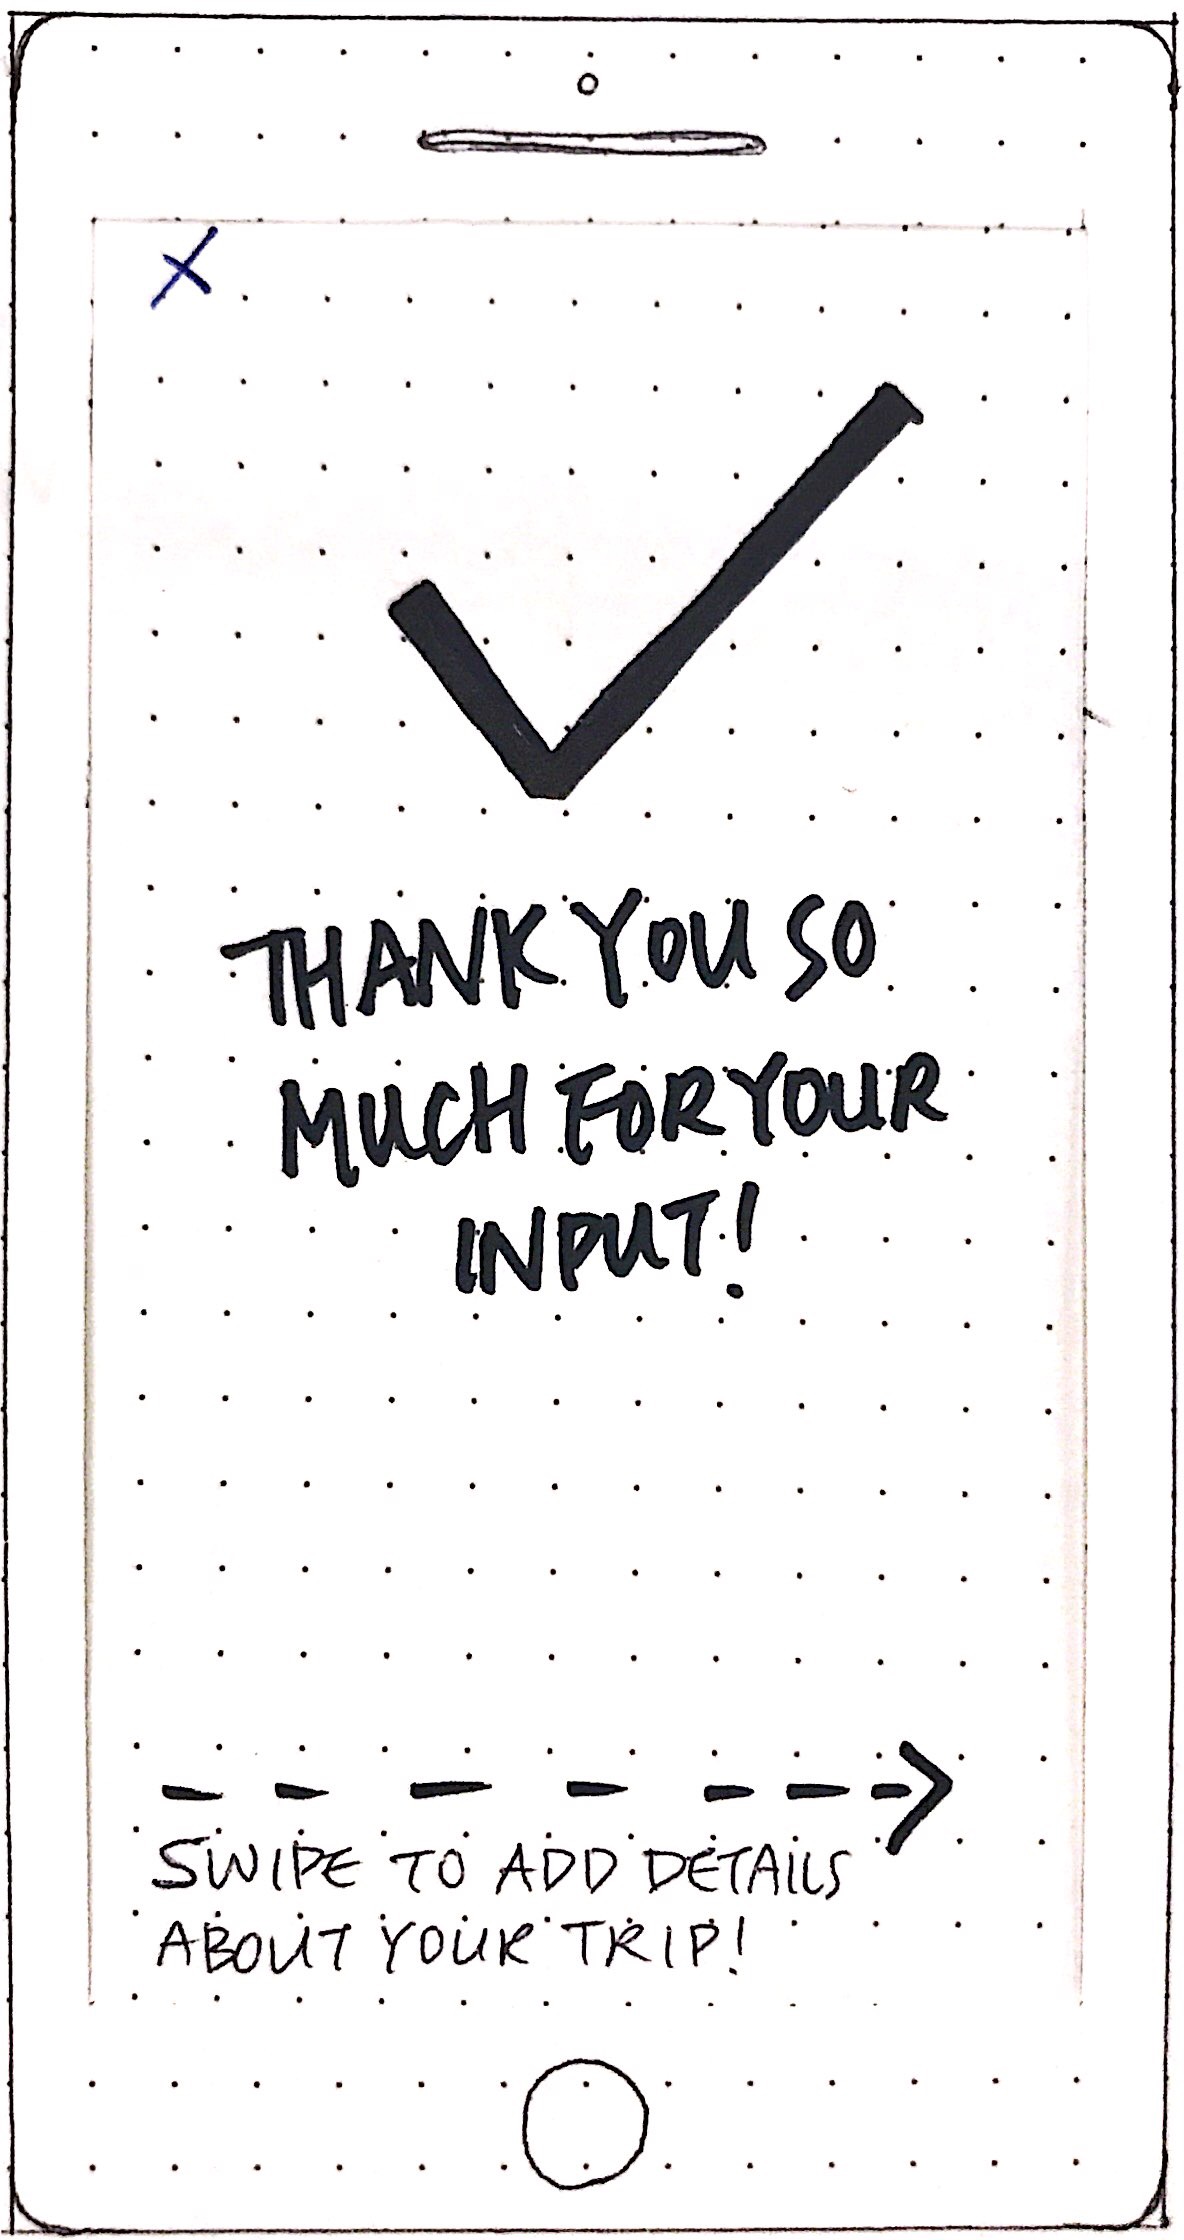 X
THANK YOU SO
MUCH FOR YOUR
INPUT!
SWIPE TO ADD DETAILS
ABOUT YOUR TRIP!